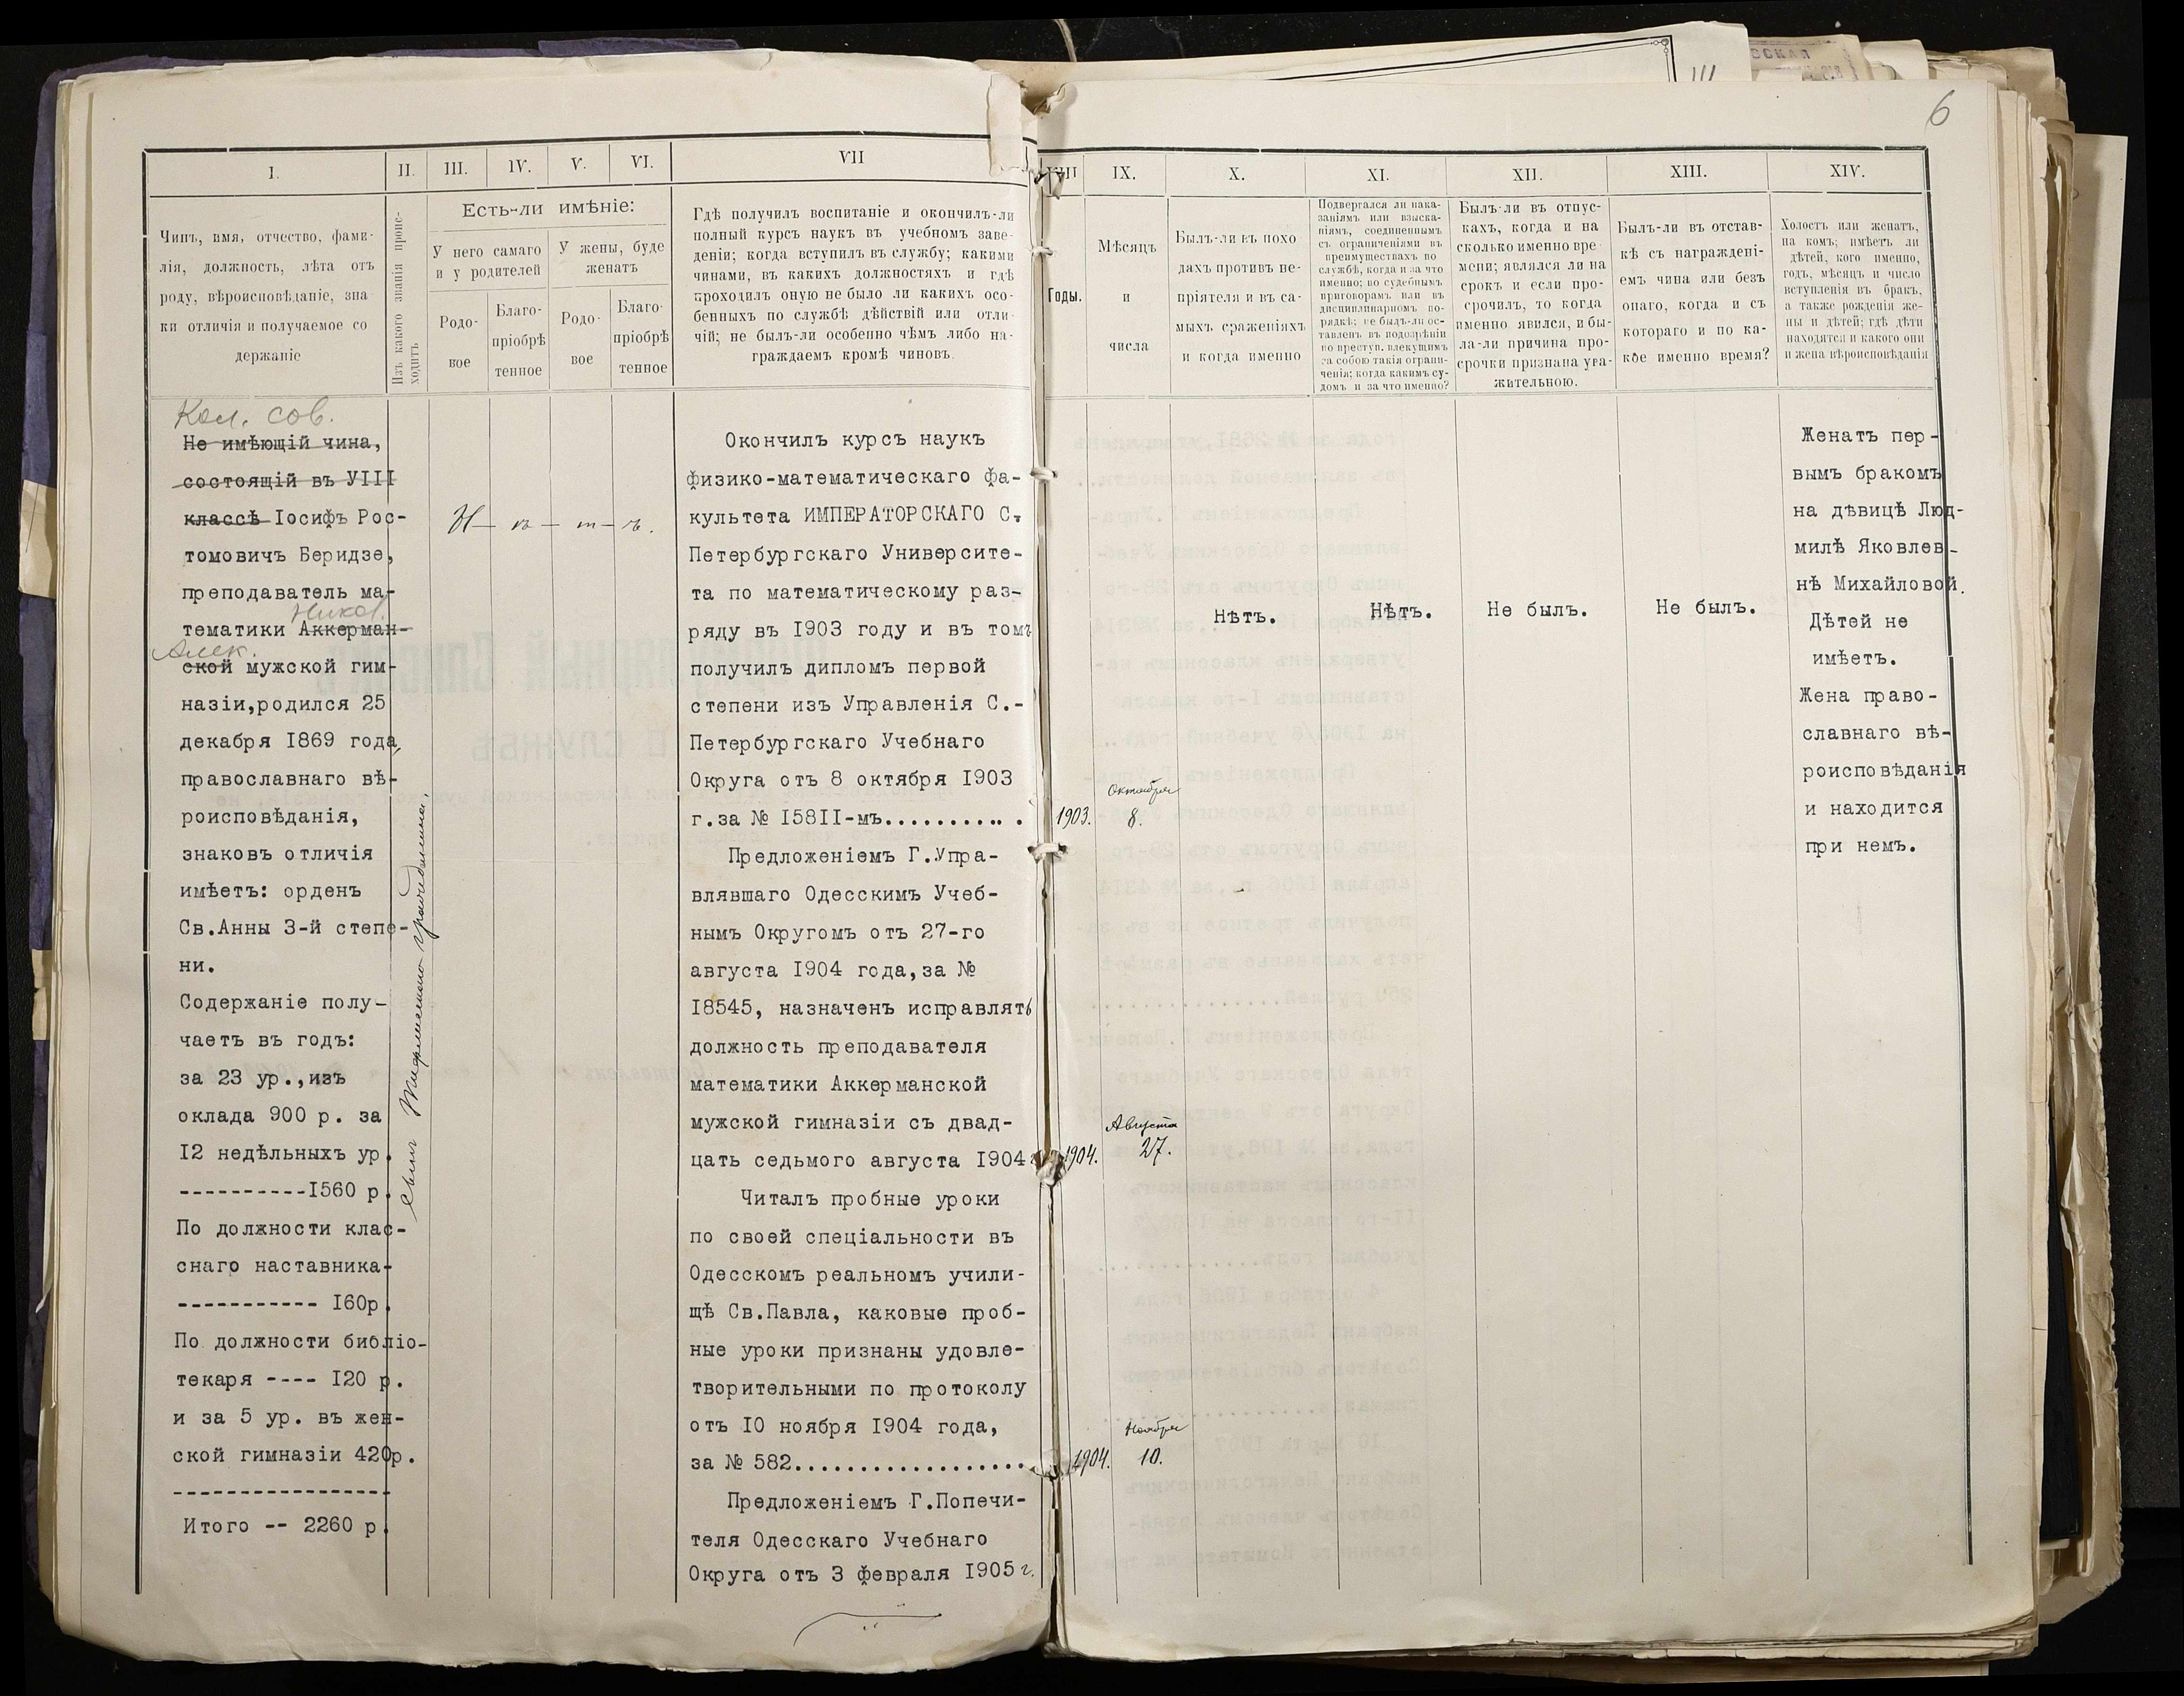 6
I.
II.
III.
IV.
V.
VI.
VII
VIII
IX.
X.
XI.
XII.
XIII.
XIV.
Чинъ, имя, отчество, фами-
лія, должность, лѣта отъ
роду, вѣроисповѣданіе, зна
ки отличія и получаемое со
держаніе
Изъ какого званія проис-
ходитъ
Есть-ли имѣніе:
У него самаго
и у родителей
У жены, буде
женатъ
Родо-
вое
Благо-
пріобрѣ
тенное
Родо-
вое
Благо-
пріобрѣ
тенное
Гдѣ получилъ воспитаніе и окончилъ-ли
полный курсъ наукъ въ учебномъ заве-
деніи; когда вступилъ въ службу; какими
чинами, въ какихъ должностяхъ и гдѣ
проходилъ оную не было ли какихъ осо-
бенныхъ по службѣ дѣйствій или отли-
чій; не былъ-ли особенно чѣмъ либо на-
граждаемъ кромѣ чиновъ.
Годы.
Мѣсяцъ
и
числа
Былъ-ли въ похо
дахъ противъ не-
пріятеля и въ са-
мыхъ сраженіяхъ
и когда именно
Подвергался ли нака-
заніямъ или взыска-
ніямъ, соединеннымъ
съ ограниченіями въ
преимуществахъ по
службѣ, когда и за что
именно; по судебнымъ
приговорамъ или въ
дисциплинарномъ по-
рядкѣ; не былъ-ли ос-
тавленъ въ подозрѣніи
по преступ. влекущимъ
за собою такія ограни-
ченія; когда какимъ су-
домъ и за что именно?
Былъ-ли въ отпус-
кахъ, когда и на
сколько именно вре
мени; являлся ли на
срокъ и если про-
срочилъ, то когда
именно явился, и бы-
ла-ли причина про-
срочки признана ува-
жительною.
Былъ-ли въ отстав-
кѣ съ награждені-
емъ чина или безъ
онаго, когда и съ
котораго и по ка-
кое именно время?
Холостъ или женатъ,
на комъ; имѣетъ ли
дѣтей, кого именно,
годъ, мѣсяцъ и число
вступленія въ бракъ,
а также рожденія же-
ны и дѣтей; гдѣ дѣти
находятся и какого они
и жена вѣроисповѣданія
Кол. сов.
Не имѣющій чина,
состоящій въ УІІІ
классѣ Іосифъ Рос-
томовичъ Беридзе,
преподаватель ма-
Никол.
тематики Аккерман-
Алек.
ской мужской гим-
назіи,родился 25
декабря І869 года,
православнаго вѣ-
роисповѣданія,
знаковъ отличія
имѣетъ: орденъ
Св.Анны 3-й степе-
ни.
Содержаніе полу-
чаетъ въ годъ:
за 23 ур.,изъ
оклада 900 р. за
І2 недѣльныхъ ур.
----------І560 р.
По должности клас-
снаго наставника-
----------- І60р.
По должности библіо-
текаря ---- І20 р.
и за 5 ур. въ жен-
ской гимназіи 420р.
-----------------
Итого -- 2260 р.
гражданина,
Н - ѣ - т - ъ.
Окончилъ курсъ наукъ
физико-математическаго фа-
культета ИМПЕРАТОРСКАГО С.
Петербургскаго Университе-
та по математическому раз-
ряду въ І903 году и въ томъ
получилъ дипломъ первой
степени изъ Управленія С.-
Петербургскаго Учебнаго
Округа отъ 8 октября І903
г.за № І58ІІ-мъ...........
Предложеніемъ Г.Упра-
влявшаго Одесскимъ Учеб-
нымъ Округомъ отъ 27-го
августа І904 года,за №
І8545, назначенъ исправлять
должность преподавателя
математики Аккерманской
мужской гимназіи съ двад-
цать седьмого августа І904 г.
Читалъ пробные уроки
по своей спеціальности въ
Одесскомъ реальномъ учили-
щѣ Св.Павла, каковые проб-
ные уроки признаны удовле-
творительными по протоколу
отъ І0 ноября І904 года,
за № 582..................
Предложеніемъ Г.Попечи-
теля Одесскаго Учебнаго
Округа отъ 3 февраля І905 г.
Октября
1903. 8.
Августа
1904. 27.
Ноября
1904. 10.
Нѣтъ.
Нѣтъ.
Не былъ.
Не былъ.
Женатъ пер-
вымъ бракомъ
на дѣвицѣ Люд-
милѣ Яковлев-
нѣ Михайловой.
Дѣтей не
имѣетъ.
Жена право-
славнаго вѣ-
роисповѣданія
и находится
при немъ.